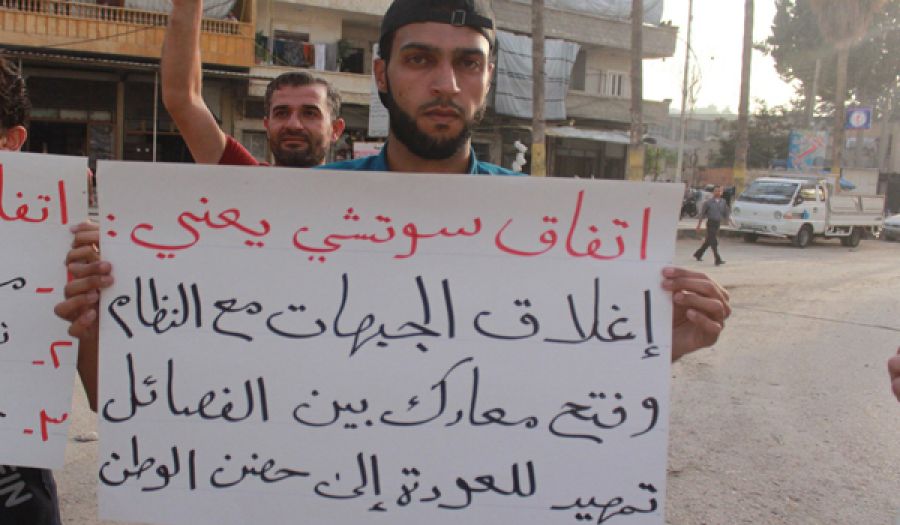 اتفاق سوتشي يعني:
إغلاق الجبهات مع النظام
وفتح معارك بين الفصائل
تمهيد للعودة إلى حضن الوطن
اتفا
-
٢-
٣-